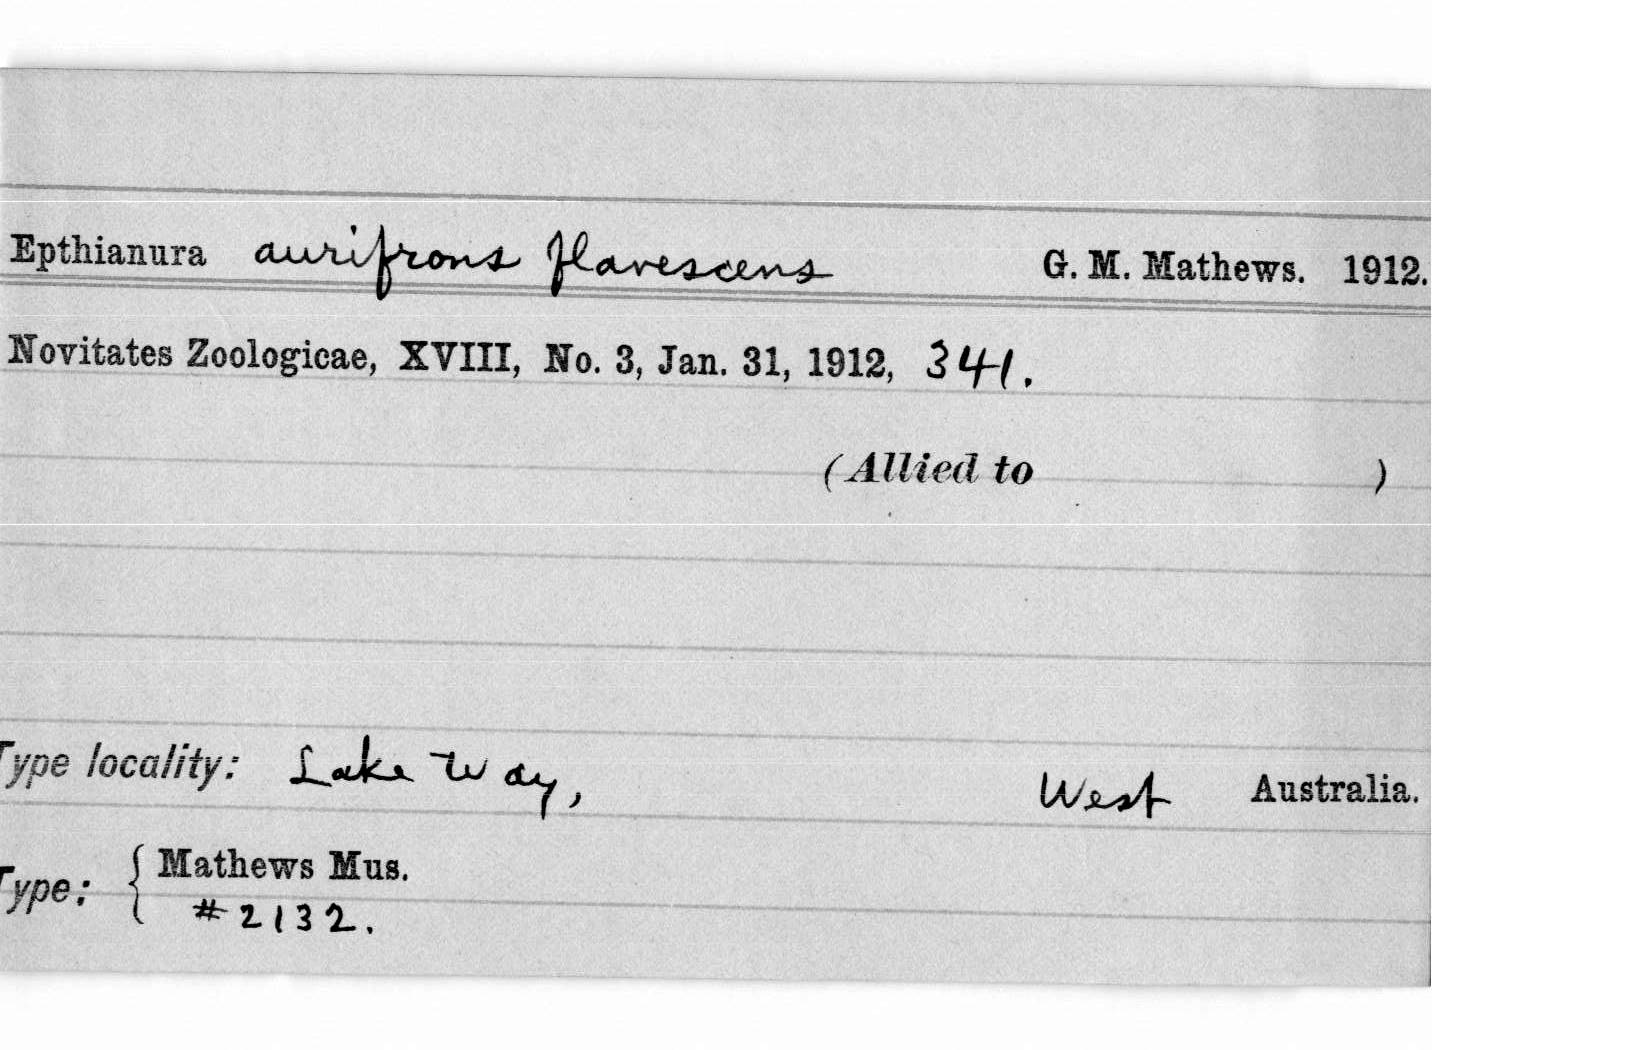 Epthianura aurifrons flavescens G. M. Mathews. 1912.
Novitates Zoologicae, XVIII, No. 3, Jan. 31, 1912, 341.
(Allied to )
Type locality: Lake Way, West Australia.
Type: { Mathews Mus.
#2132.